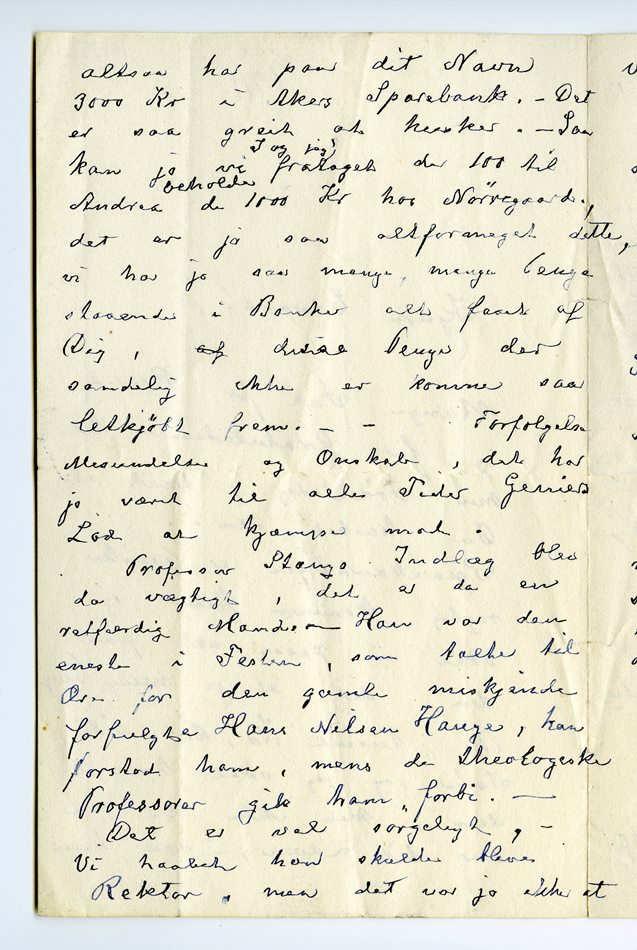 altsaa har paa dit Navn
3000 Kr i Akers Sparebank. – Det
er saa greit at huske. – Saa
kan jo vi I og jeg! fratages de 100 til
beholde
Andrea de 1000 Kr hos Nörregaard.,
det er jo saa altformeget dette,
vi har jo saa mange, mange Penge
staaende i Banker alt faaet af
Dig, af disse Penge der
sandelig ikke er komne saa
letkjøbt frem. – – Forfølgelse
Misundelse og Ondskab, det har
jo været til alle Tider Geniers
Lod at kjæmpe mod.
Professor Stangs Indlæg blev
da vægtigt, det er da en
retfærdig Mand – Han var den
eneste i Festen, som talte til
Ære for den gamle miskjendte
forfulgte Hans Nilsen Hauge, han
forstod ham, mens de theologiske
Professorer gik ham „forbi. –
Det er vel sørgeligt, –
Vi haabet han skulde bleve
Rektor, men det var jo ikke at